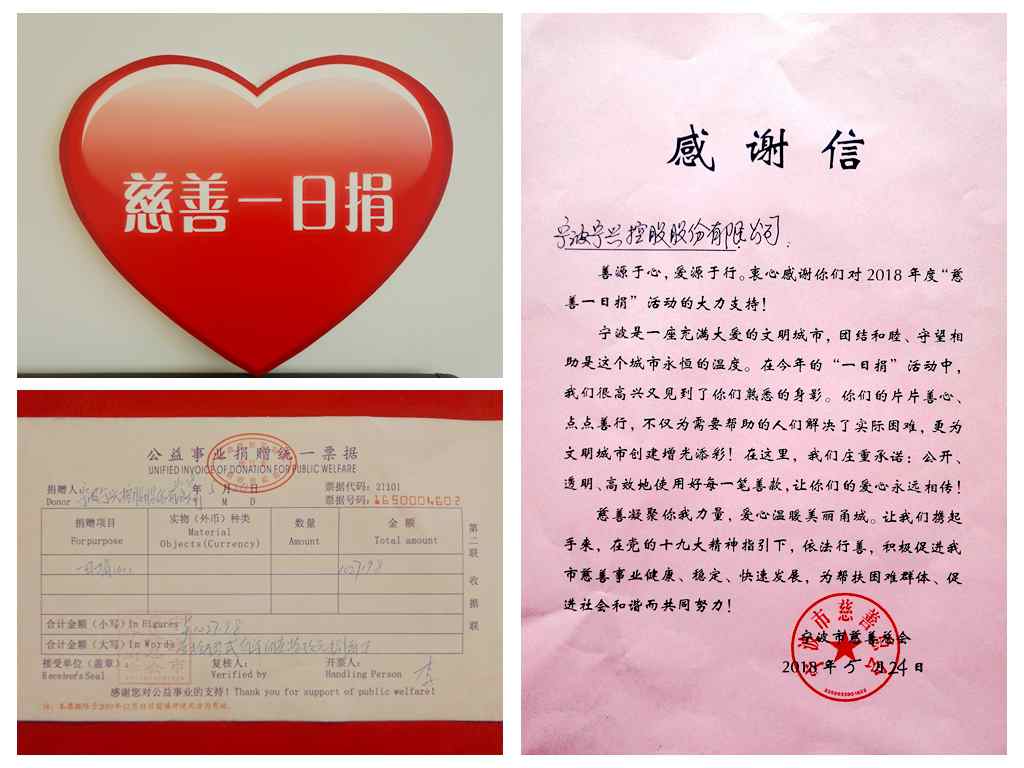 慈善一日捐
公益事业捐赠统一票据
UNIFIED INVOICE OF DONATION FOR PUBLIC WELFARE
捐赠人
Donor
宁波宁兴控股股份有限公司
年 5 月 日
Y M D
票据代码: 27101
票据号码: 1650004602
捐赠项目 实物（外币）种类 数量 金 额
For purpose Material Objects(Currency) Amount Total amount
一日捐
合计金额（小写）In Figures
合计金额（大写）In Words
接受单位（盖章）: 复核人: 开票人:
Receiver's Seal Verified by Handling Person
感谢您对公益事业的支持! Thank you for support of public welfare!
第二联 收据联
感谢信
宁波宁兴控股股份有限公司.
善源于心，爱源于行。衷心感谢你们对 2018 年度“慈
善一日捐”活动的大力支持！
宁波是一座充满大爱的文明城市，团结和睦、守望相
助是这个城市永恒的温度。在今年的“一日捐”活动中，
我们很高兴又见到了你们熟悉的身影。你们的片片善心、
点点善行，不仅为需要帮助的人们解决了实际困难，更为
文明城市创建增光添彩！在这里，我们庄重承诺：公开、
透明、高效地使用好每一笔善款，让你们的爱心永远相传！
慈善凝聚你我力量，爱心温暖美丽甬城。让我们携起
手来，在党的十九大精神指引下，依法行善，积极促进我
市慈善事业健康、稳定、快速发展，为帮扶困难群体、促
进社会和谐而共同努力！
宁波市慈善总会
2018 年 5 月 24 日